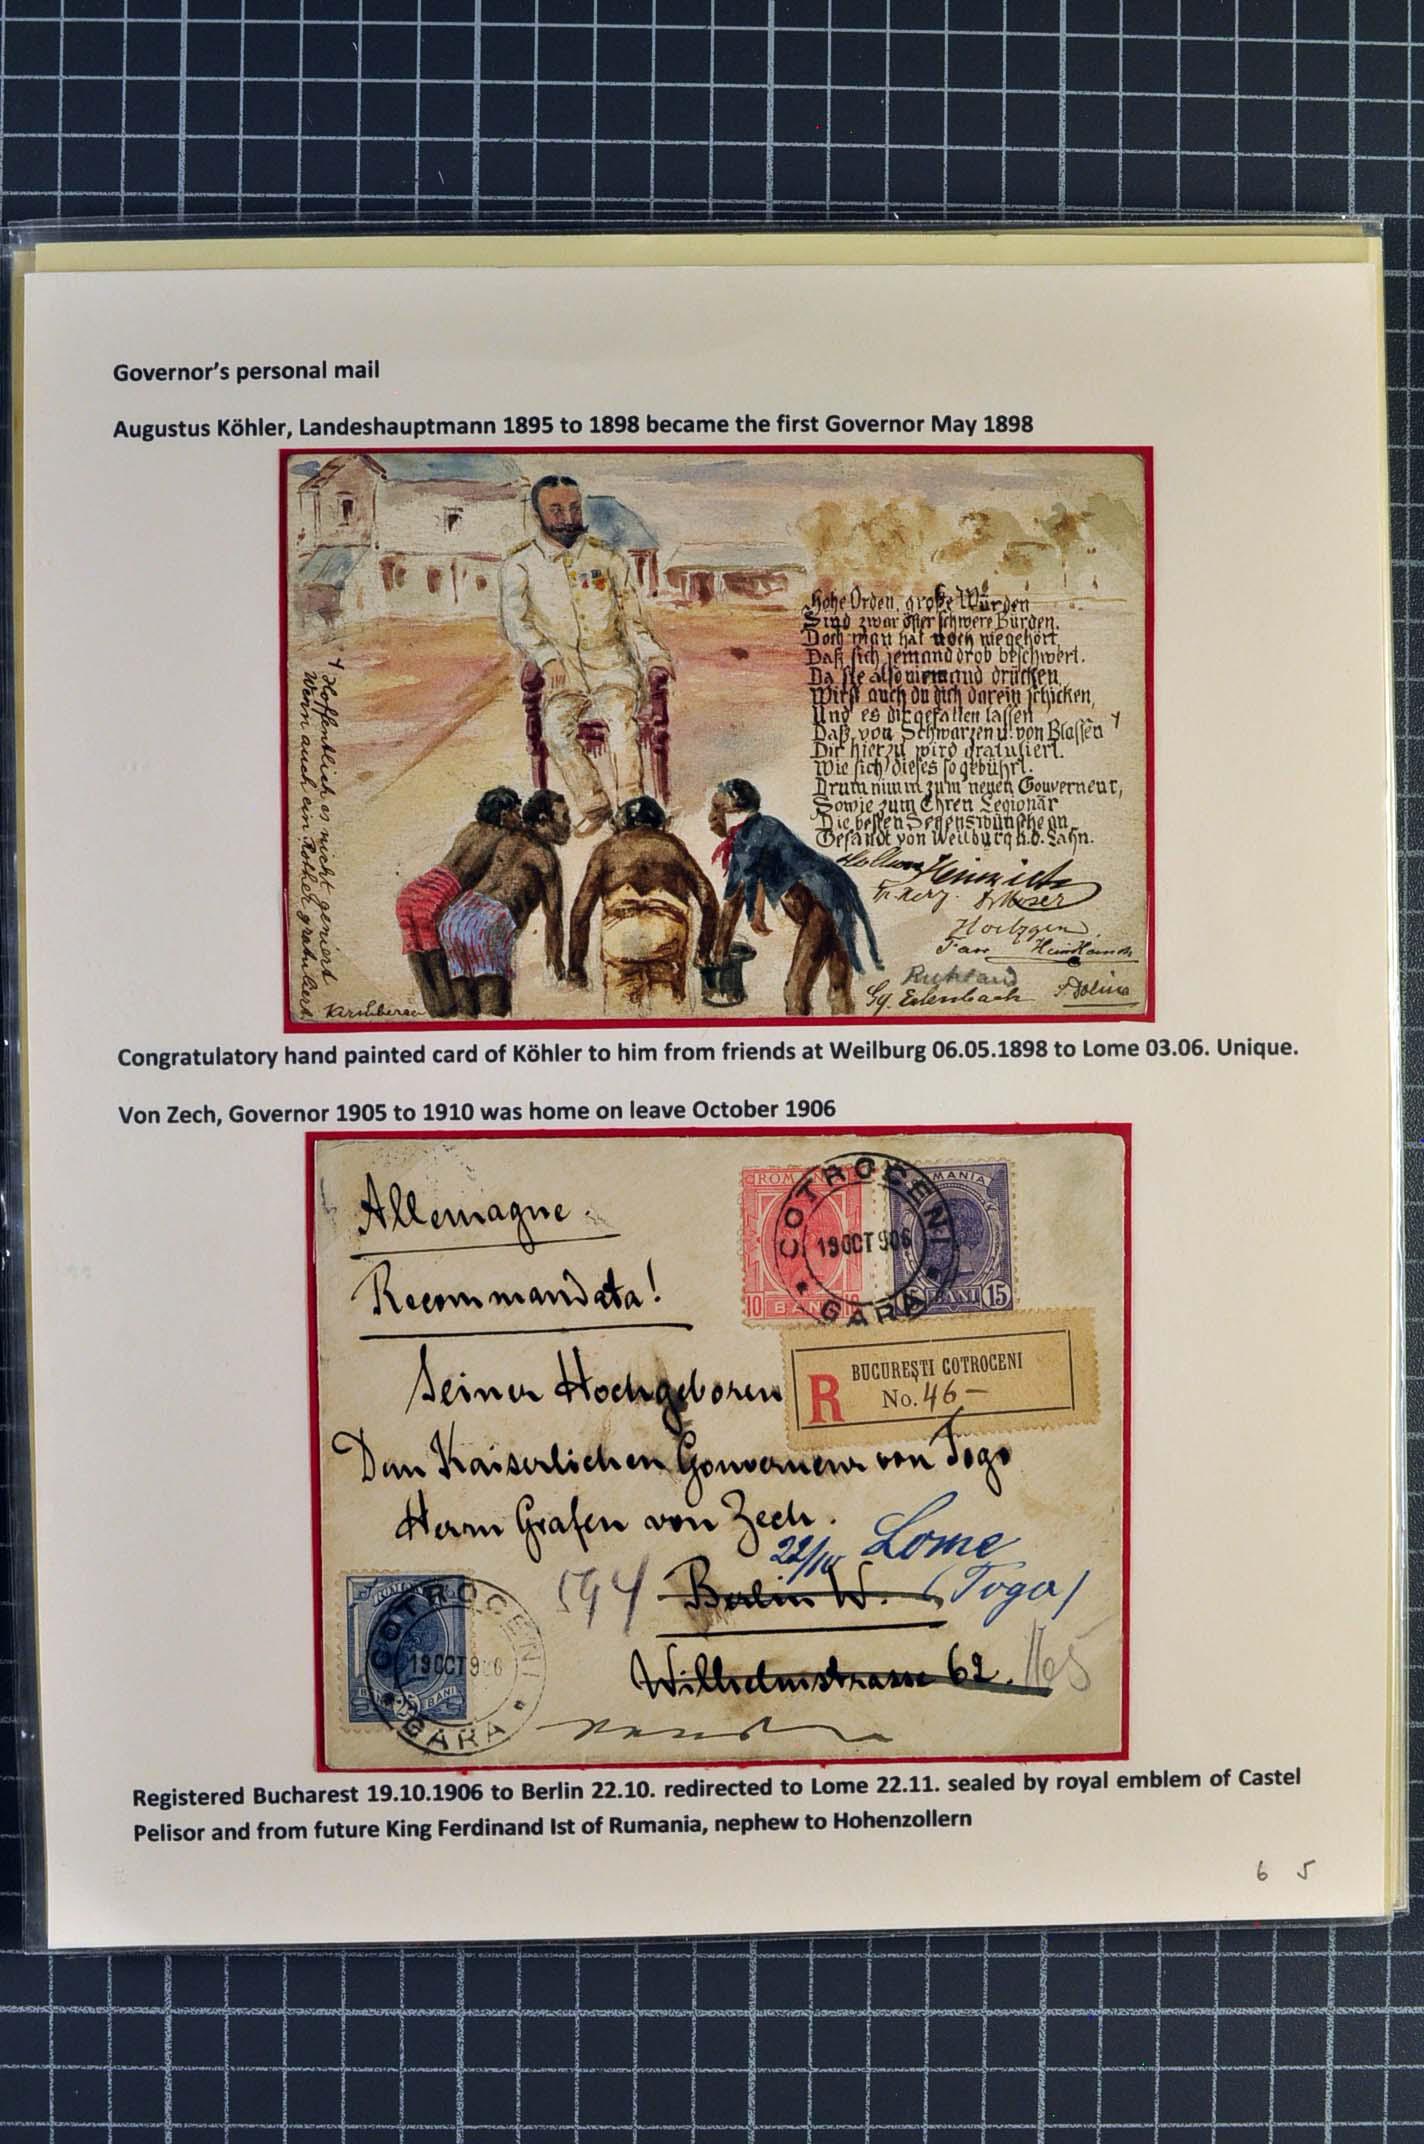 Governor's personal mail
Augustus Köhler, Landeshauptmann 1895 to 1898 became the first Governor May 1898
Hohe Orden, große Würden
Sind zwar öfter schwere Bürden.
Doch man hat noch nie gehört,
Daß sich jemand drob beschwert.
Da sie also niemand drücken,
Wirst auch du dich darein schicken,
Und es dir gefallen lassen
Daß von Schwarzen u. von Blassen
Dir hierzu wird gratuliert.
Wie sich dieses so gebührt.
Drum nimm zum neuen Gouverneur,
Sowie zum Ehren Legionär
Die besten Segenswünsche an
Gesandt von Weilburg a.d. Lahn.
Heinrich
Moser
Ruhland
Gg. Erlenbach
Hoffentlich es nicht geniert
Wenn auch ein Rother gratuliert.
Congratulatory hand painted card of Köhler to him from friends at Weilburg 06.05.1898 to Lome 03.06. Unique.
Von Zech, Governor 1905 to 1910 was home on leave October 1906
Allemagne.
Recommandata!
ROMANIA
10 BANI 10
MANIA
15 BANI 15
COTROCENI
19 OCT 906
* GARA *
BUCUREȘTI COTROCENI
R No. 46-
Seiner Hochgeboren
Den Kaiserlichen Gouverneur von Togo
Herrn Grafen von Zech.
22/10 Lome
594 Berlin W. (Togo)
Wilhelmstrasse 62. 1165
COTROCENI
19 OCT 906
* GARA *
25 BANI
Registered Bucharest 19.10.1906 to Berlin 22.10. redirected to Lome 22.11. sealed by royal emblem of Castel
Pelisor and from future King Ferdinand Ist of Rumania, nephew to Hohenzollern
6 5